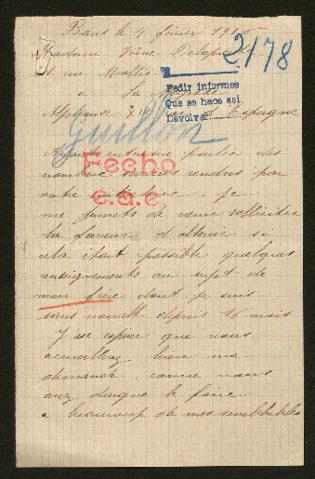 Paris le 4 février 191
Madame Veuve Delap
51 rue
2178
à Sa Majesté
Pedir informes
Que se hace así
Devolver
Alphonse XIII Espagne
Guillon
Ayant entendue parler des
nombreux services rendus par
votre je
Fecho
C.a.e.
me permets de venir solliciter
la faveur d'obtenir si
cela était possible quelques
renseignements au sujet de
mon frère dont je suis
sans nouvelle depuis 16 mois
J'ose espérer que vous
accueillerez bien ma
demande comme vous
avez daigné le faire
a beaucoup de mes semblables